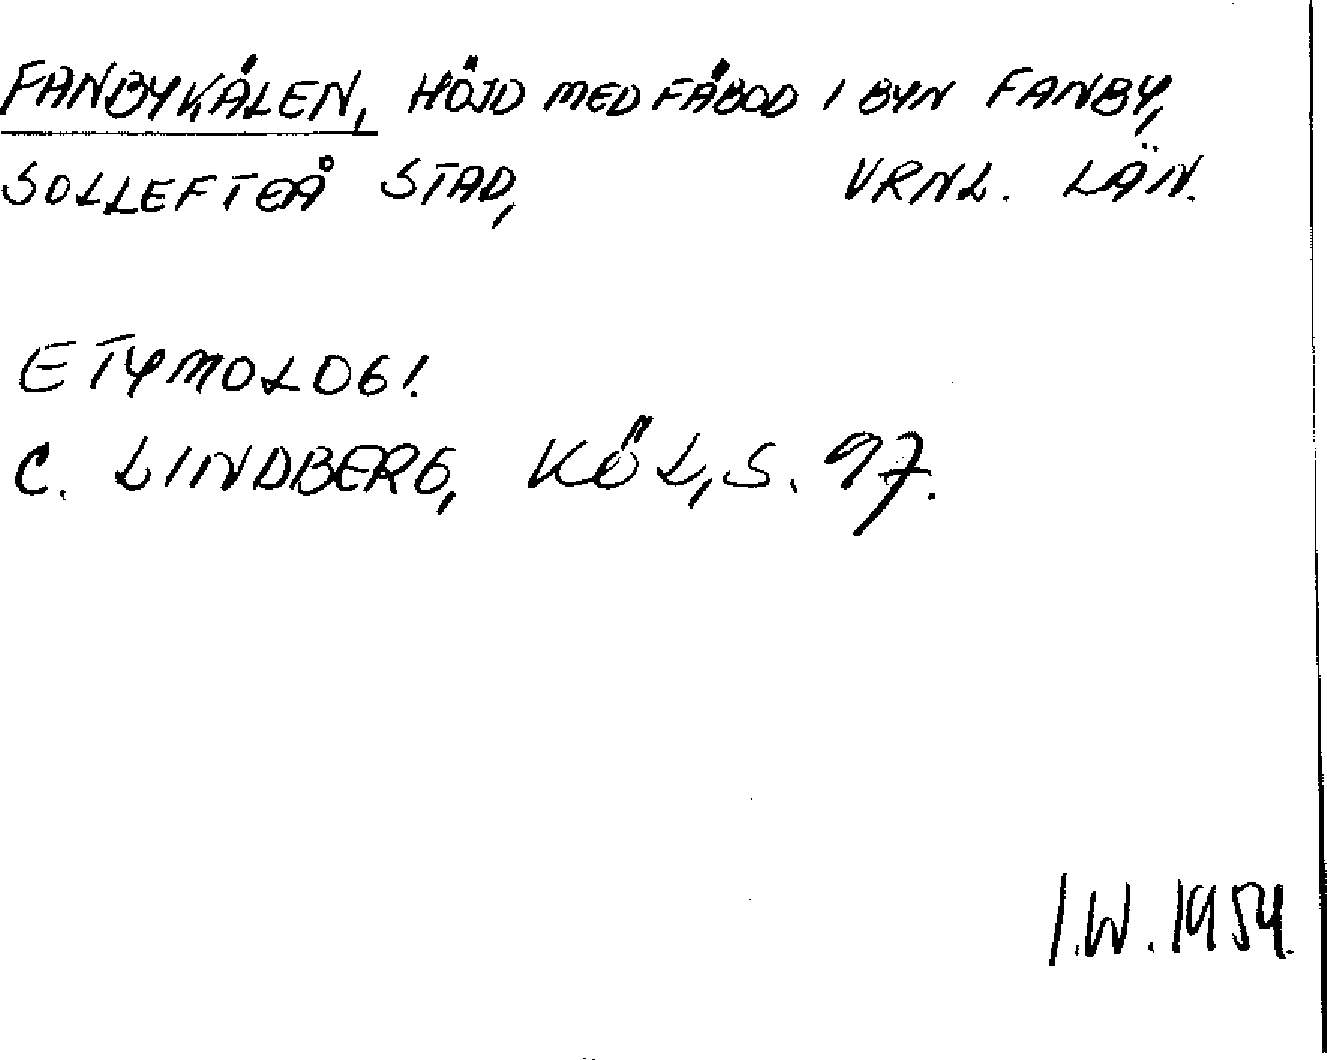 FANBYKÅLEN, HÖJD MED FÄBOD I BYN FANBY,
SOLLEFTEÅ STAD, VRNL. LÄN.
ETYMOLOGI.
C. LINDBERG, KÖL, S. 97.
I.W. 1954.